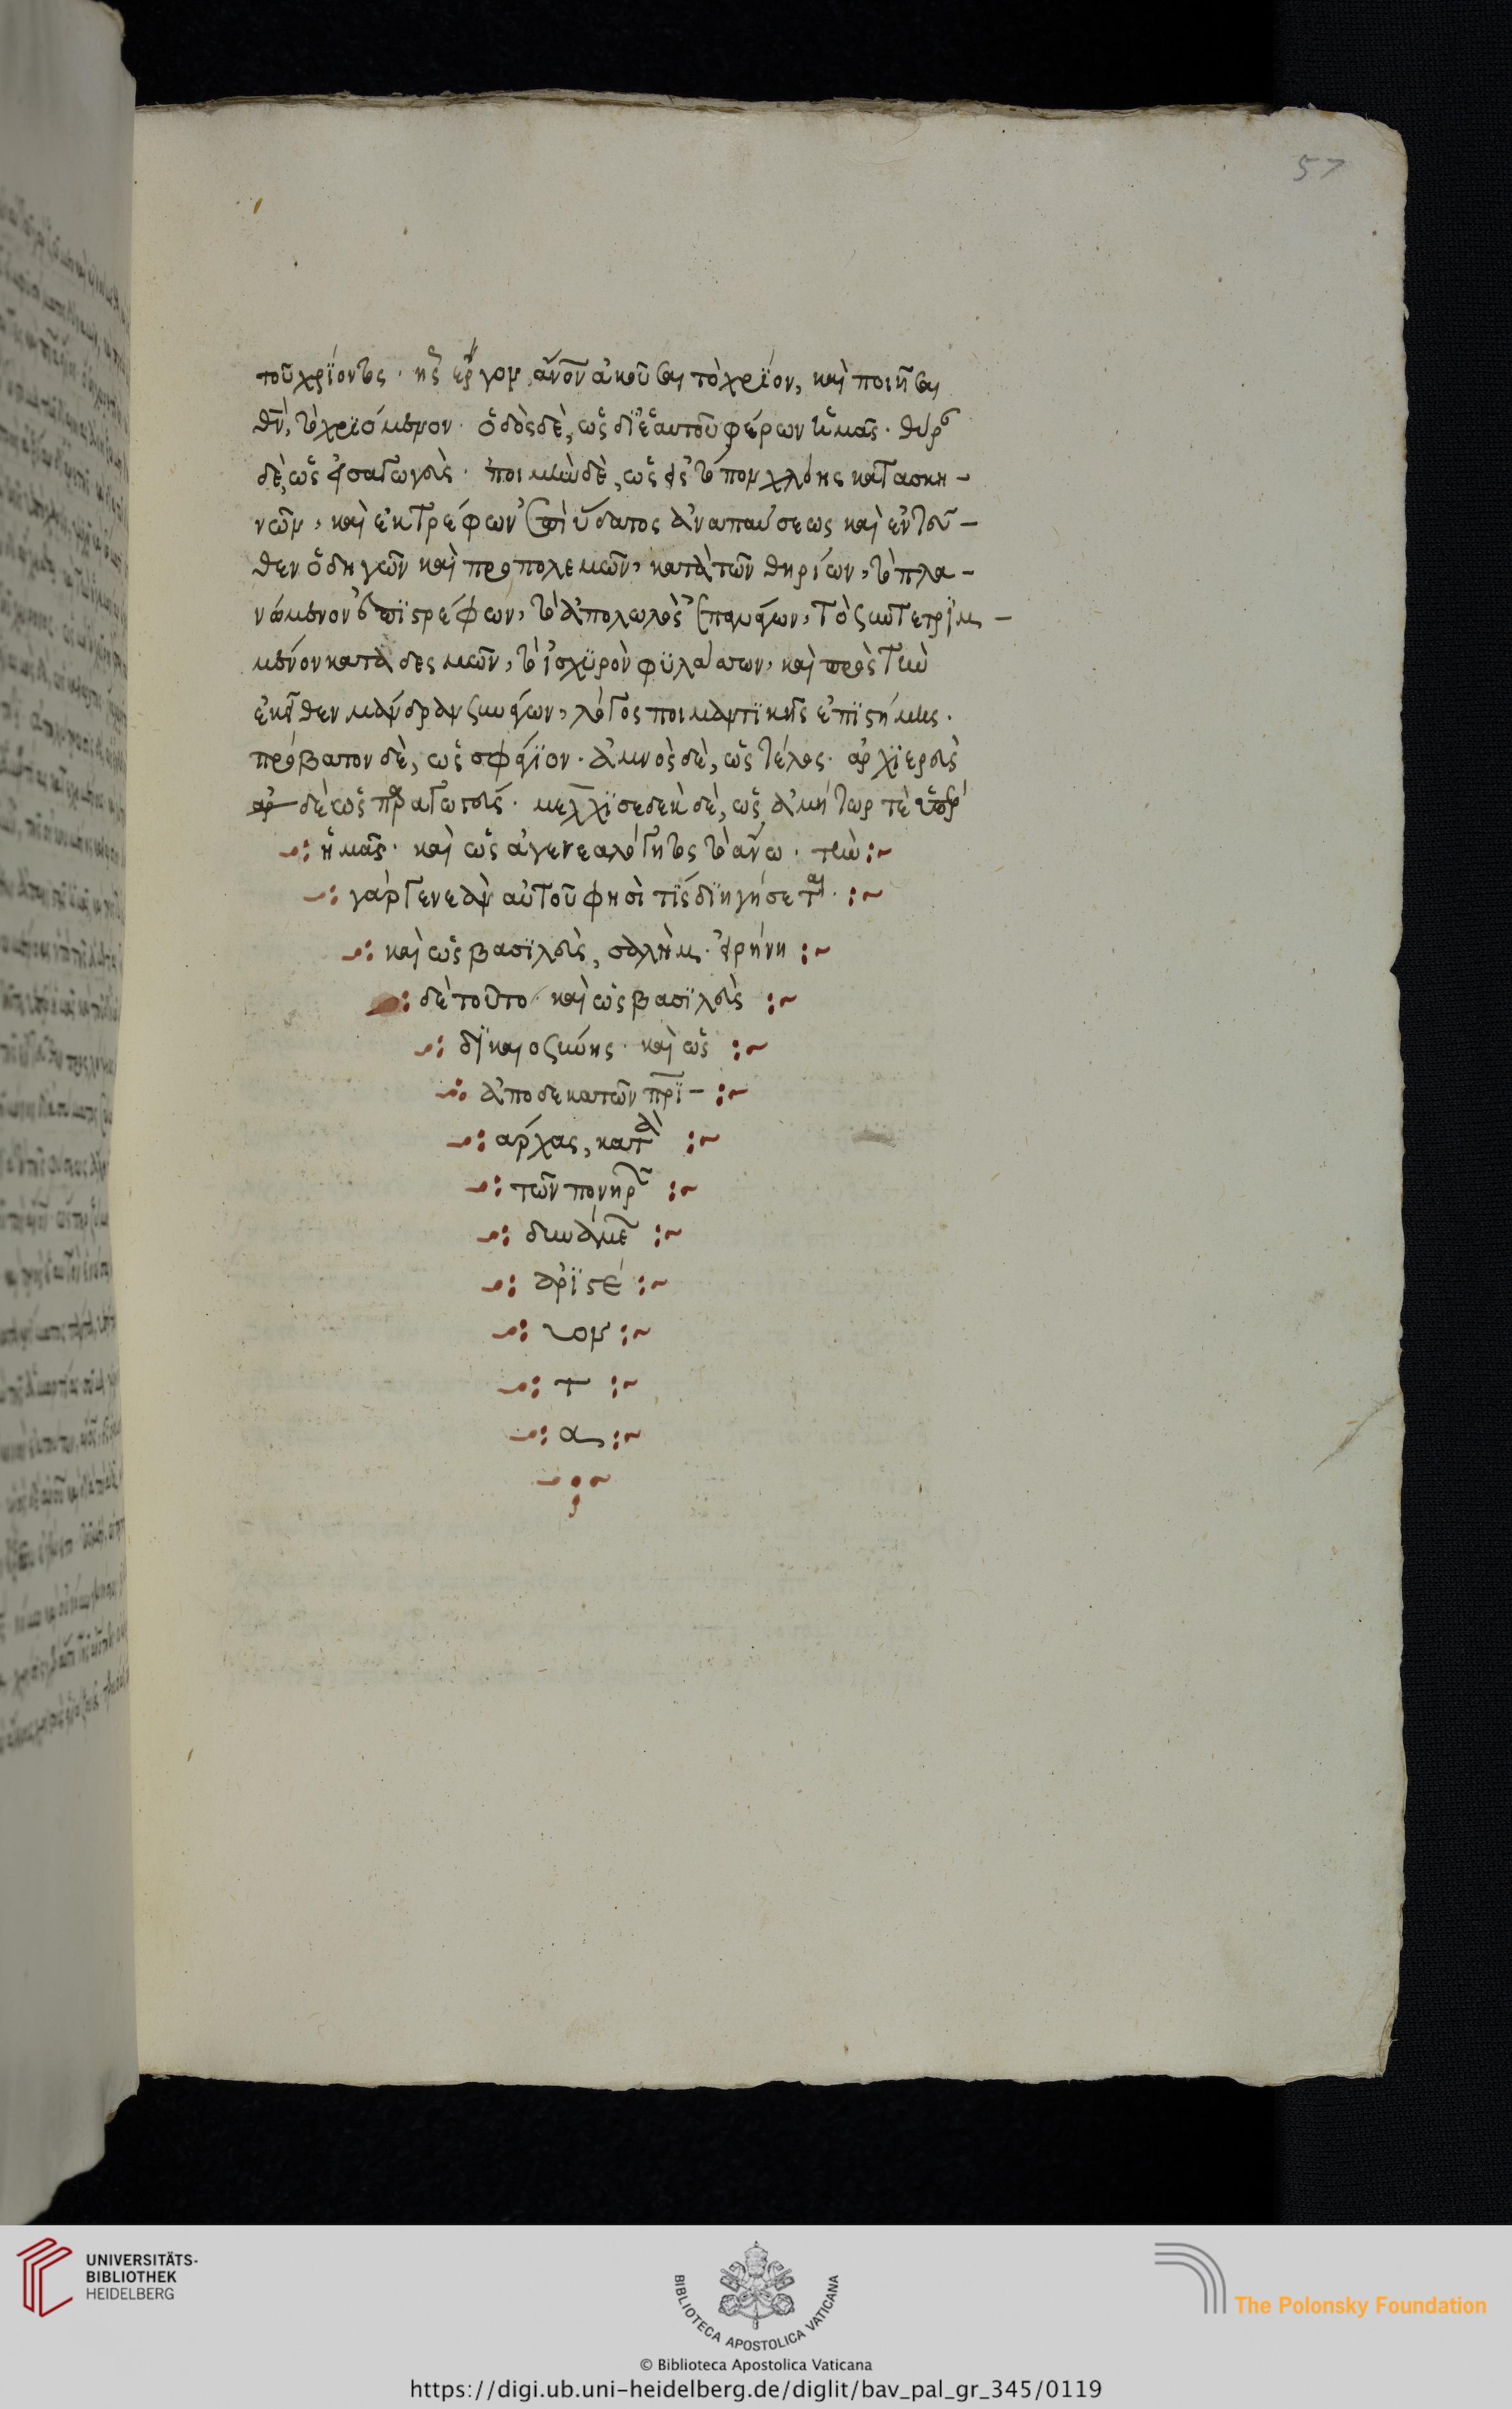 57
τοῦ χρίοντος· ἧς ἔργον, ἄνον ἀκοῦσαι τὸ χρίον, καὶ ποιῆσαι
θν̄, τὸ χριόμενον· ὁδὸς δὲ, ὡς δι' ἑαυτοῦ φέρων ἡμᾶς· θύρα
δὲ, ὡς εἰσαγωγεύς· ποιμὴν δὲ, ὡς εἰς τόπον χλόης κατασκη-
νῶν, καὶ ἐκτρέφων ἐπὶ ὕδατος ἀναπαύσεως καὶ ἐντεῦ-
θεν ὁδηγῶν καὶ προπολεμῶν, κατὰ τῶν θηρίων, τὸ πλα-
νώμενον ἐπιστρέφων, τὸ ἀπολωλὸς ἐπανάγων, τὸ συντετριμ-
μένον καταδεσμῶν, τὸ ἰσχυρὸν φυλάττων, καὶ πρὸς τὴν
ἐκεῖθεν μάνδραν συνάγων, λόγοις ποιμαντικῆς ἐπιστήμης.
πρόβατον δὲ, ὡς σφάγιον· ἀμνὸς δὲ, ὡς τέλειος· ἀρχιερεὺς
δὲ ὡς προσαγωγεύς· μελχισεδὲκ δὲ, ὡς ἀμήτωρ τὸ ὑπὲρ
ἡμᾶς· καὶ ὡς ἀγενεαλόγητος τὸ ἄνω· τὴν
γὰρ γενεὰν αὐτοῦ φησὶ τίς διηγήσεται·
καὶ ὡς βασιλεὺς, σαλήμ· εἰρήνη
δὲ τοῦτο· καὶ ὡς βασιλεὺς
δικαιοσύνης· καὶ ὡς
ἀποδεκατῶν πρι-
άρχας, κατὰ
τῶν πονηρῶν
δυνάμε
ἀριστέ
υον
τ
α
UNIVERSITÄTS-
BIBLIOTHEK
HEIDELBERG
BIBLIOTECA APOSTOLICA VATICANA
The Polonsky Foundation
© Biblioteca Apostolica Vaticana
https://digi.ub.uni-heidelberg.de/diglit/bav_pal_gr_345/0119